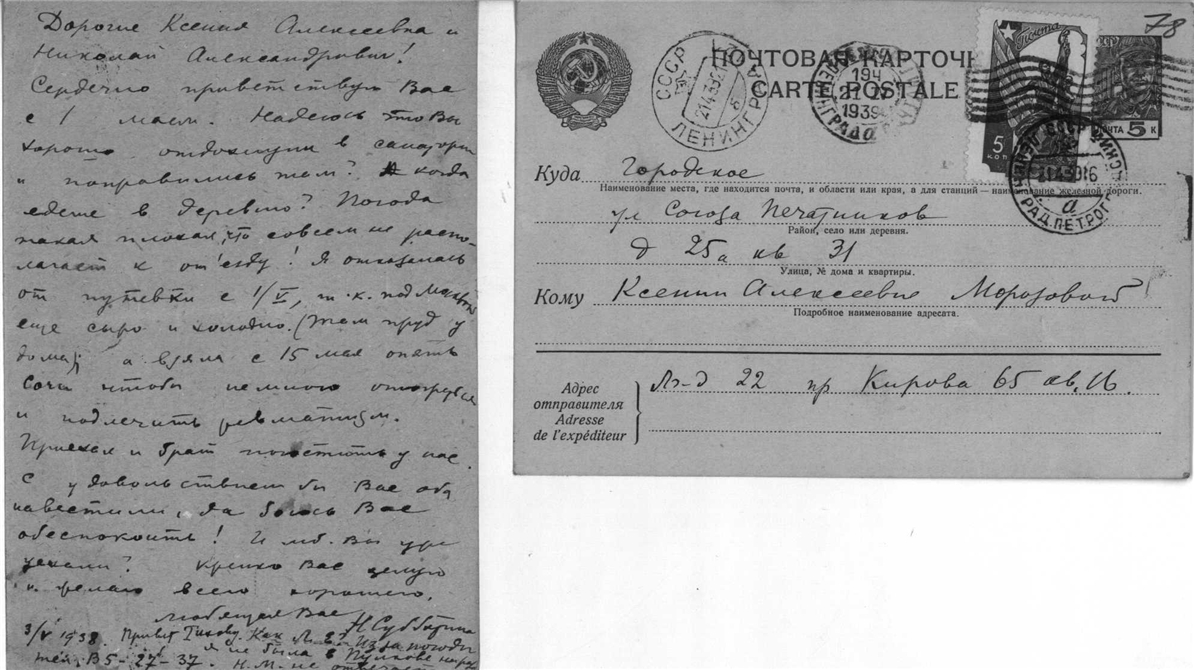 Дорогие Ксения Алексеевна и
Николай Александрович!
Сердечно приветствую Вас
с 1 маем. Надеюсь что Вы
хорошо отдохнули в санатории
и поправились там? А когда
едете в деревню? Погода
такая плохая, что совсем не распо-
лагает к от'езду! Я отказалась
от путевки с 1/V, т.к. под Москвой
еще сыро и холодно. (Там пруд у
дома), а взяла с 15 мая опять
Сочи чтобы немного отогреться
и подлечить ревматизм.
Приехал и брат погостить у нас.
С удовольствием бы Вас оба
навестили, да боюсь Вас
обеспокоить! И мб. Вы уже
уехали? Крепко Вас целую
и желаю всего хорошего.
Любящая Вас
Н Субботина
3/V 1938. Привет Тихову. Как
Из за погоды
я не была в Пулкове
тел. В5-27-37. Н.М. не
78
ПОЧТОВАЯ КАРТОЧ
CARTE POSTALE
СССР
ЛЕНИНГРАД
21439
194
21 IV
1939
ЛЕНИНГРАД
Почта
5 КОП
ПОЧТА 5 К
ЛЕНИНГРАД ПЕТРОГ
Куда Городское
Наименование места, где находится почта, и области или края, а для станций — наименование железной дороги.
ул Союза Печатников
Район, село или деревня.
д 25а кв 31
Улица, № дома и квартиры.
Кому Ксении Алексеевне Морозовой
Подробное наименование адресата.
Адрес
отправителя
Adresse
de l'expéditeur
Лг-д 22 пр Кирова 65 кв. 16.